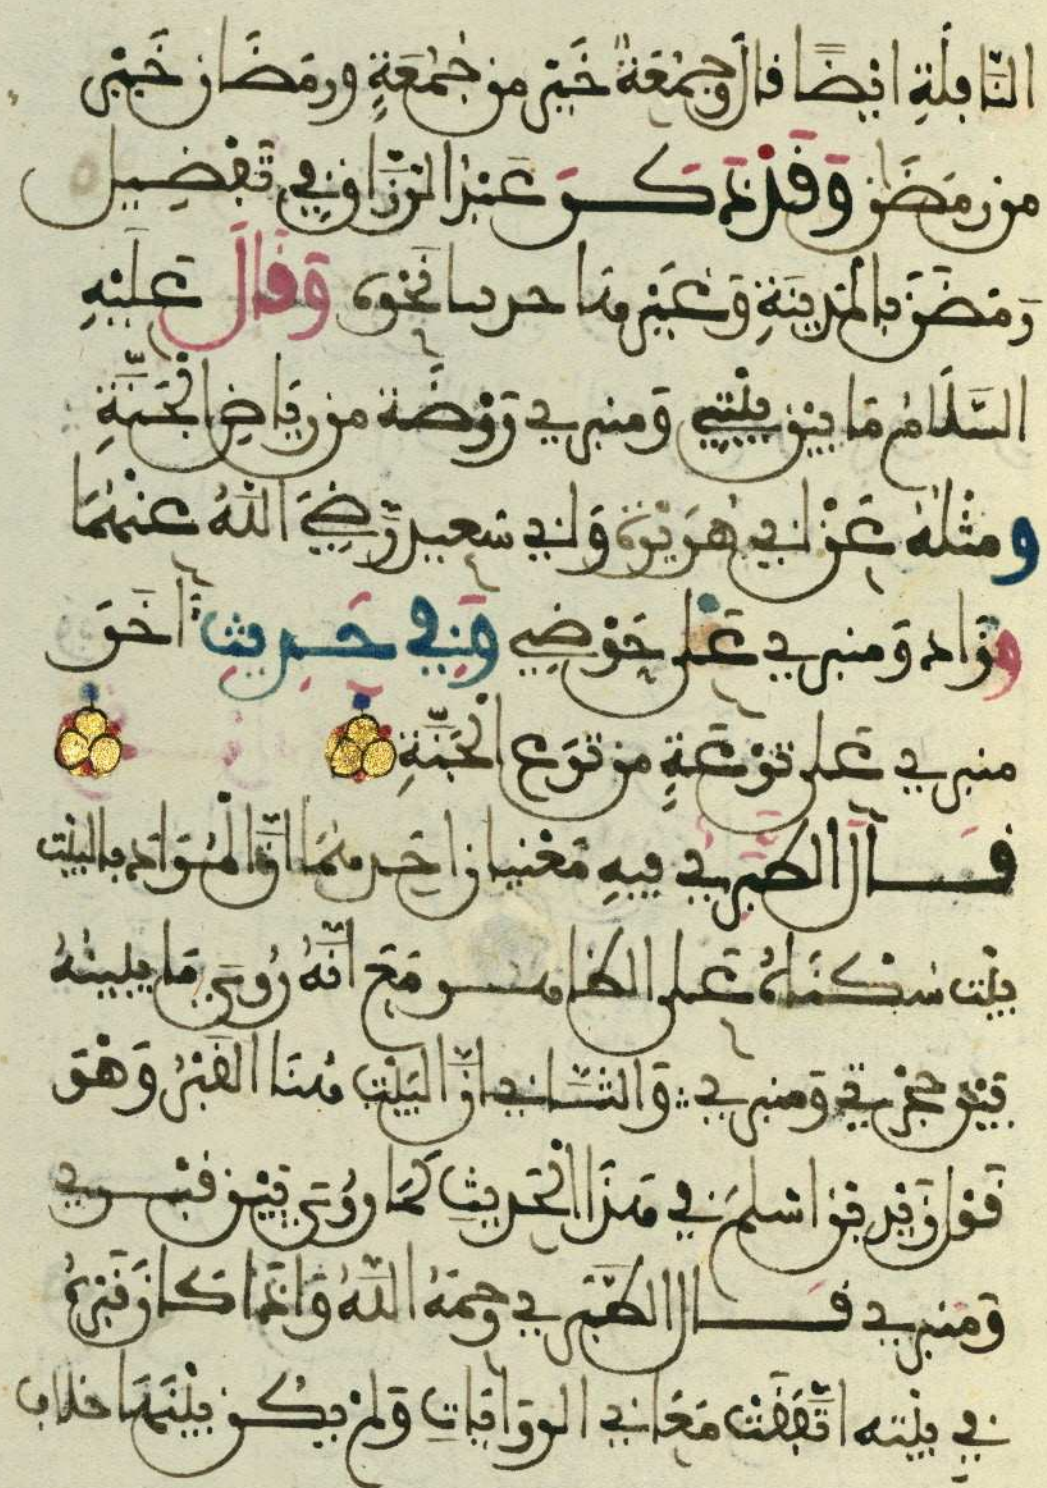 النَّافِلَةِ ايْضًا قالَ وجُمُعَةٌ خَيْرٌ من جُمُعَةٍ ورمَضَان خَيْر
من رمَضَٰن وَقَدْ ذَكَرَ عَبْدُ الرَّزَّاقِ فِي تَفْضِيل
رَمَضَنَ بالمَدِينَةِ وَغَيْرِهَا حديثا نَحْوَهُ وَقَالَ عَلَيْهِ
السَّلَامُ مَا بَيْنَ بَيْتِي وَمنبري رَوْضَة من رِيَاضِ الْجَنَّةِ
ومثْلُهُ عَنْ أبِي هُرَيْرَةَ وَأبِي سَعِيدٍ رَضِيَ اللَّهُ عَنْهُمَا
وزَادَ وَمنبري عَلى حَوْضِي وَفِي حَدِيثٍ اخَرَ
منبري عَلى تُرْعَةٍ من تُرَعِ الْجَنَّةِ
قَالَ الطَّبَرِيُّ فِيهِ مَعْنيان احَدهُمَا انَّ الْمُرَادَ بالبَيْت
بَيْت سُكْنَاهُ عَلى الظاهر مَعَ انَّهُ رُوِيَ مَا يبينهُ
بَيْنَ حُجْرَتِي وَمنبري وَالثَّاني انَّ الْبَيْت هُنَا القَبْرُ وَهْوَ
قَوْل زَيْدِ بْنِ اسْلَمَ فِي هَذَا الْحَدِيثِ كَمَا رُوِيَ بَيْنَ قَبْري
وَمنبري قَالَ الطَّبَري رحِمَهُ اللَّهُ وَاذَا كَانَ قَبْرهُ
فِي بَيْته اتَّفَقَتْ مَعَاني الروَايَاتِ وَلمْ يَكُن بَيْنَهَا خلاف